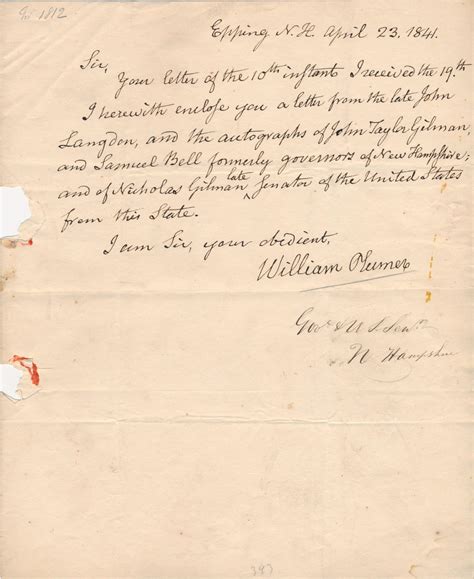 1812
Epping N.H. April 23. 1841.
Sir,
Your letter of the 10th instants I received the 19.th
I herewith enclose you a letter from the late John
Langdon, and the autographs of John Taylor Gilman,
and Samuel Bell formerly governors of New Hampshire;
and of Nicholas Gilman late Senator of the United States
from this State.
I am Sir, your obedient,
William Plumer
Gov.r & U S Sen.r
N Hampshire